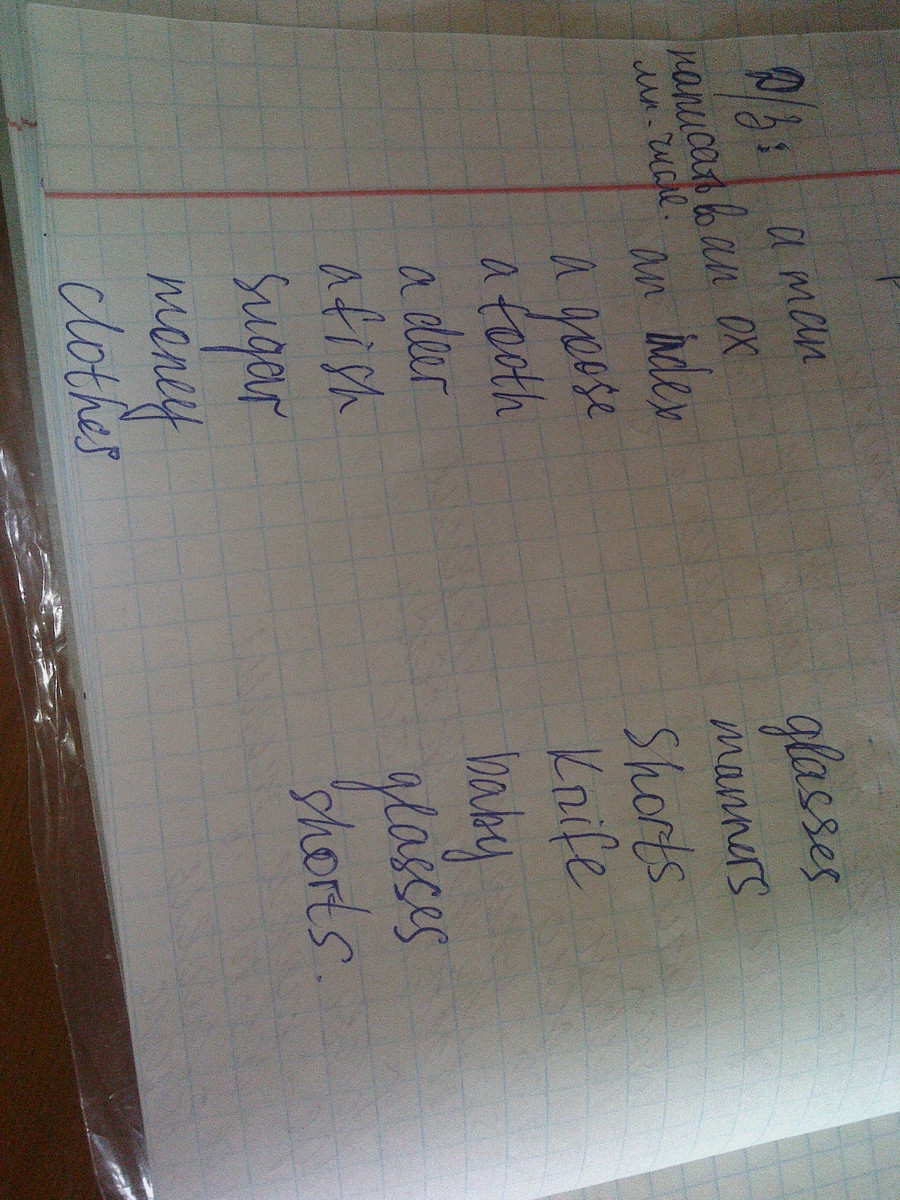 Д/з: a man
написать во an ox
мн. числе. an index
a goose
a tooth
a deer
a fish
sugar
money
clothes
glasses
manners
shorts
knife
baby
glasses
shorts.